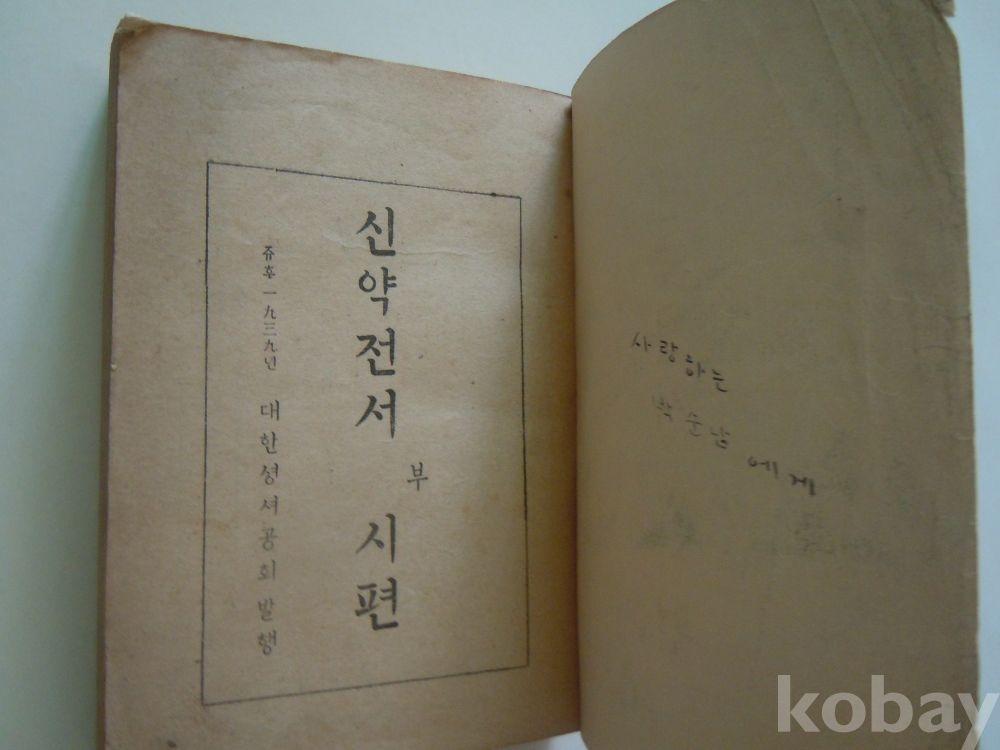 신약전서
부
시편
쥬후一九三九년 대한성셔공회 발행
사랑하는
박순남 에게
kobay